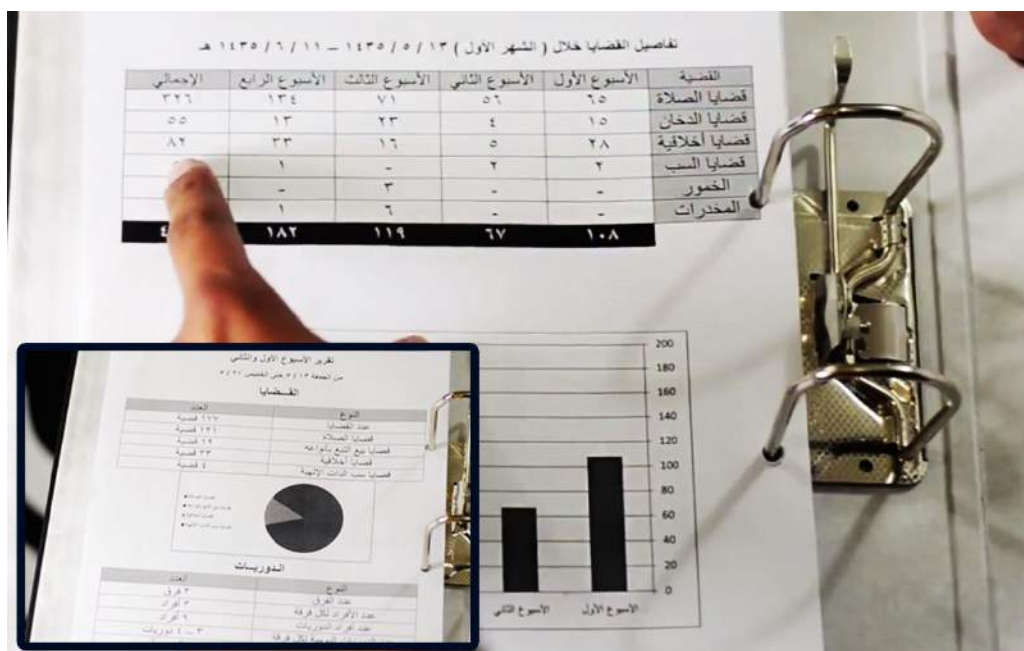 تفاصيل القضايا خلال ( الشهر الأول ) ١٣ / ٥ / ١٤٣٥ – ١١ / ٦ / ١٤٣٥ هـ
القضية الأسبوع الأول الأسبوع الثاني الأسبوع الثالث الأسبوع الرابع الإجمالي
قضايا الصلاة ٦٥ ٥٦ ٧١ ١٣٤ ٣٢٦
قضايا الدخان ١٥ ٤ ٢٣ ١٣ ٥٥
قضايا أخلاقية ٢٨ ٥ ١٦ ٣٣ ٨٢
قضايا السب ٢ ٢ - ١
الخمور - - ٣ -
المخدرات - - ٦ ١
١٠٨ ٦٧ ١١٩ ١٨٢ ٤
200
180
160
140
120
100
80
60
40
20
0
الأسبوع الأول الأسبوع الثاني
تقرير الأسبوع الأول والثاني
من الجمعة ١٣ / ٥ حتى الخميس
القــضايا
النوع العدد
عدد القضايا ١٧٧ قضية
قضايا الصلاة ١٢١ قضية
قضايا بيع التبغ بأنواعه ١٩ قضية
قضايا أخلاقية ٣٣ قضية
قضايا سب الذات الإلهية ٤ قضية
الـدوريــات
النوع العدد
عدد الفرق ٣ فرق
عدد الأفراد لكل فرقة ٣ أفراد
عدد أفراد الدوريات ٩ أفراد
٣ – ٤ دوريات